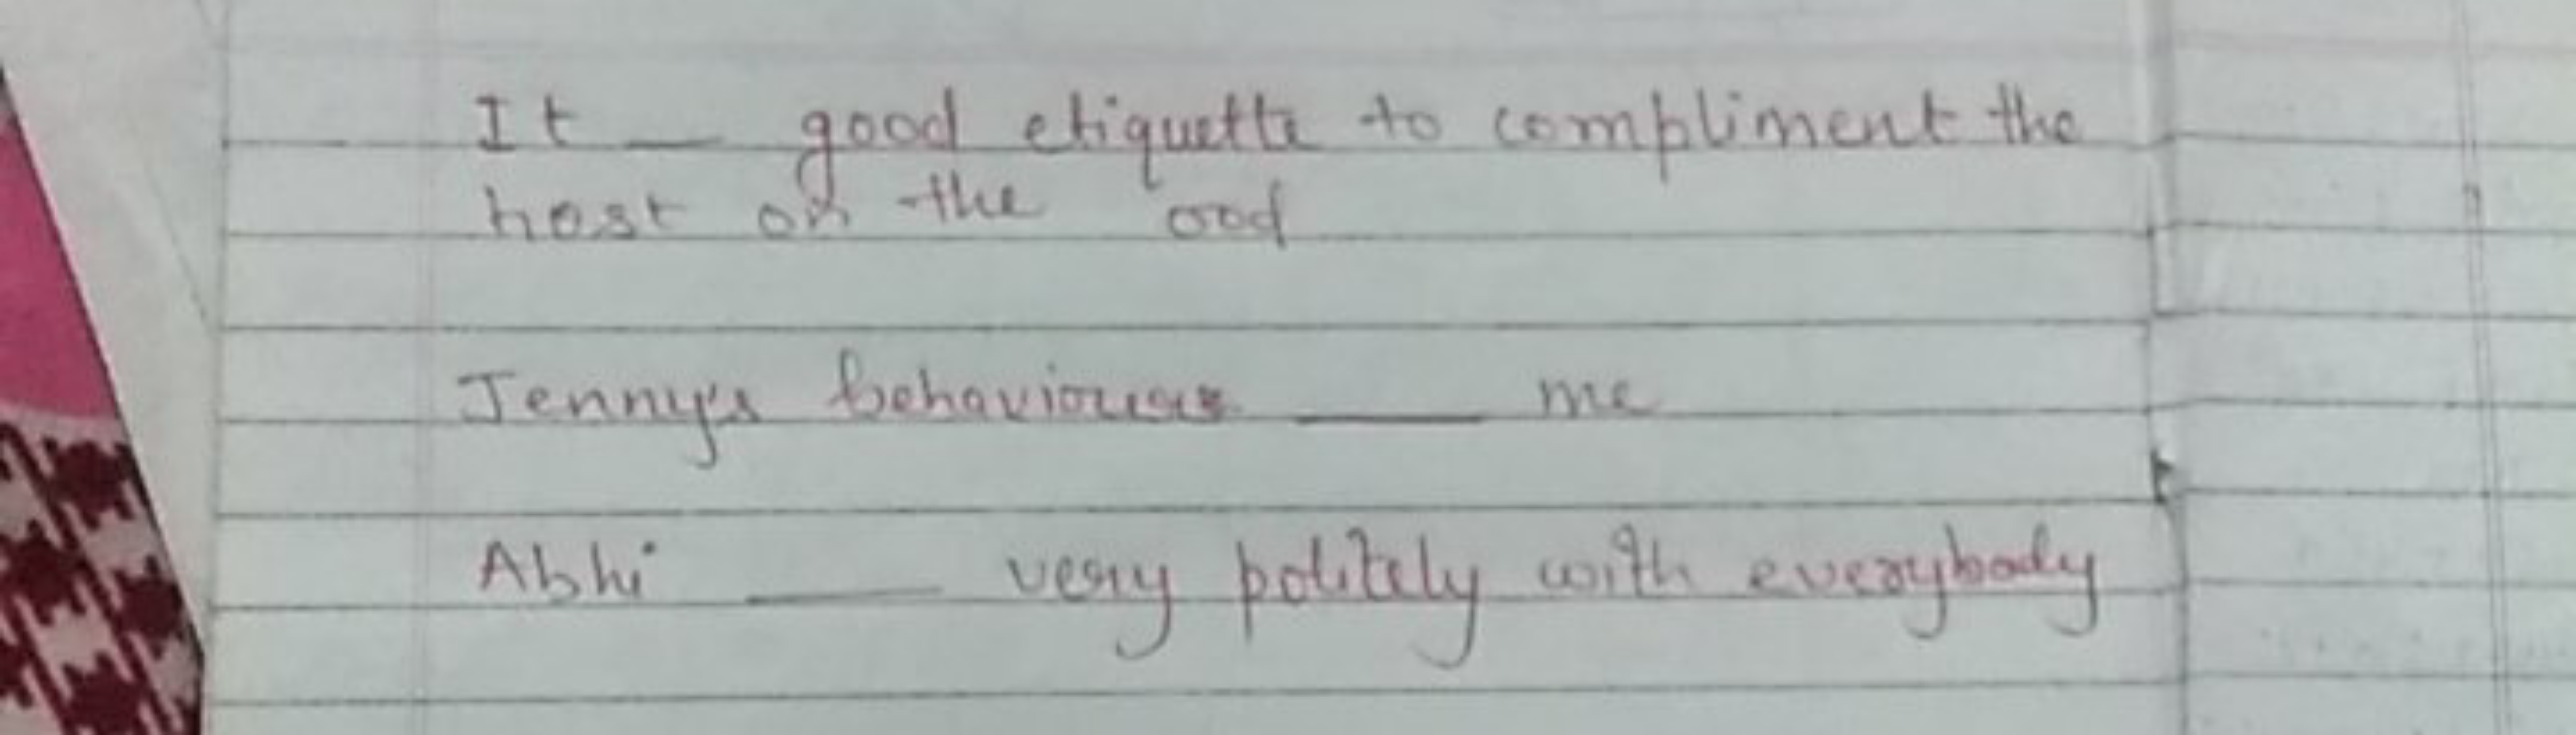 It __ good etiquette to compliment the
host on the ood
Jenny's behaviour ____ me
Abhi ____ very politely with everybody